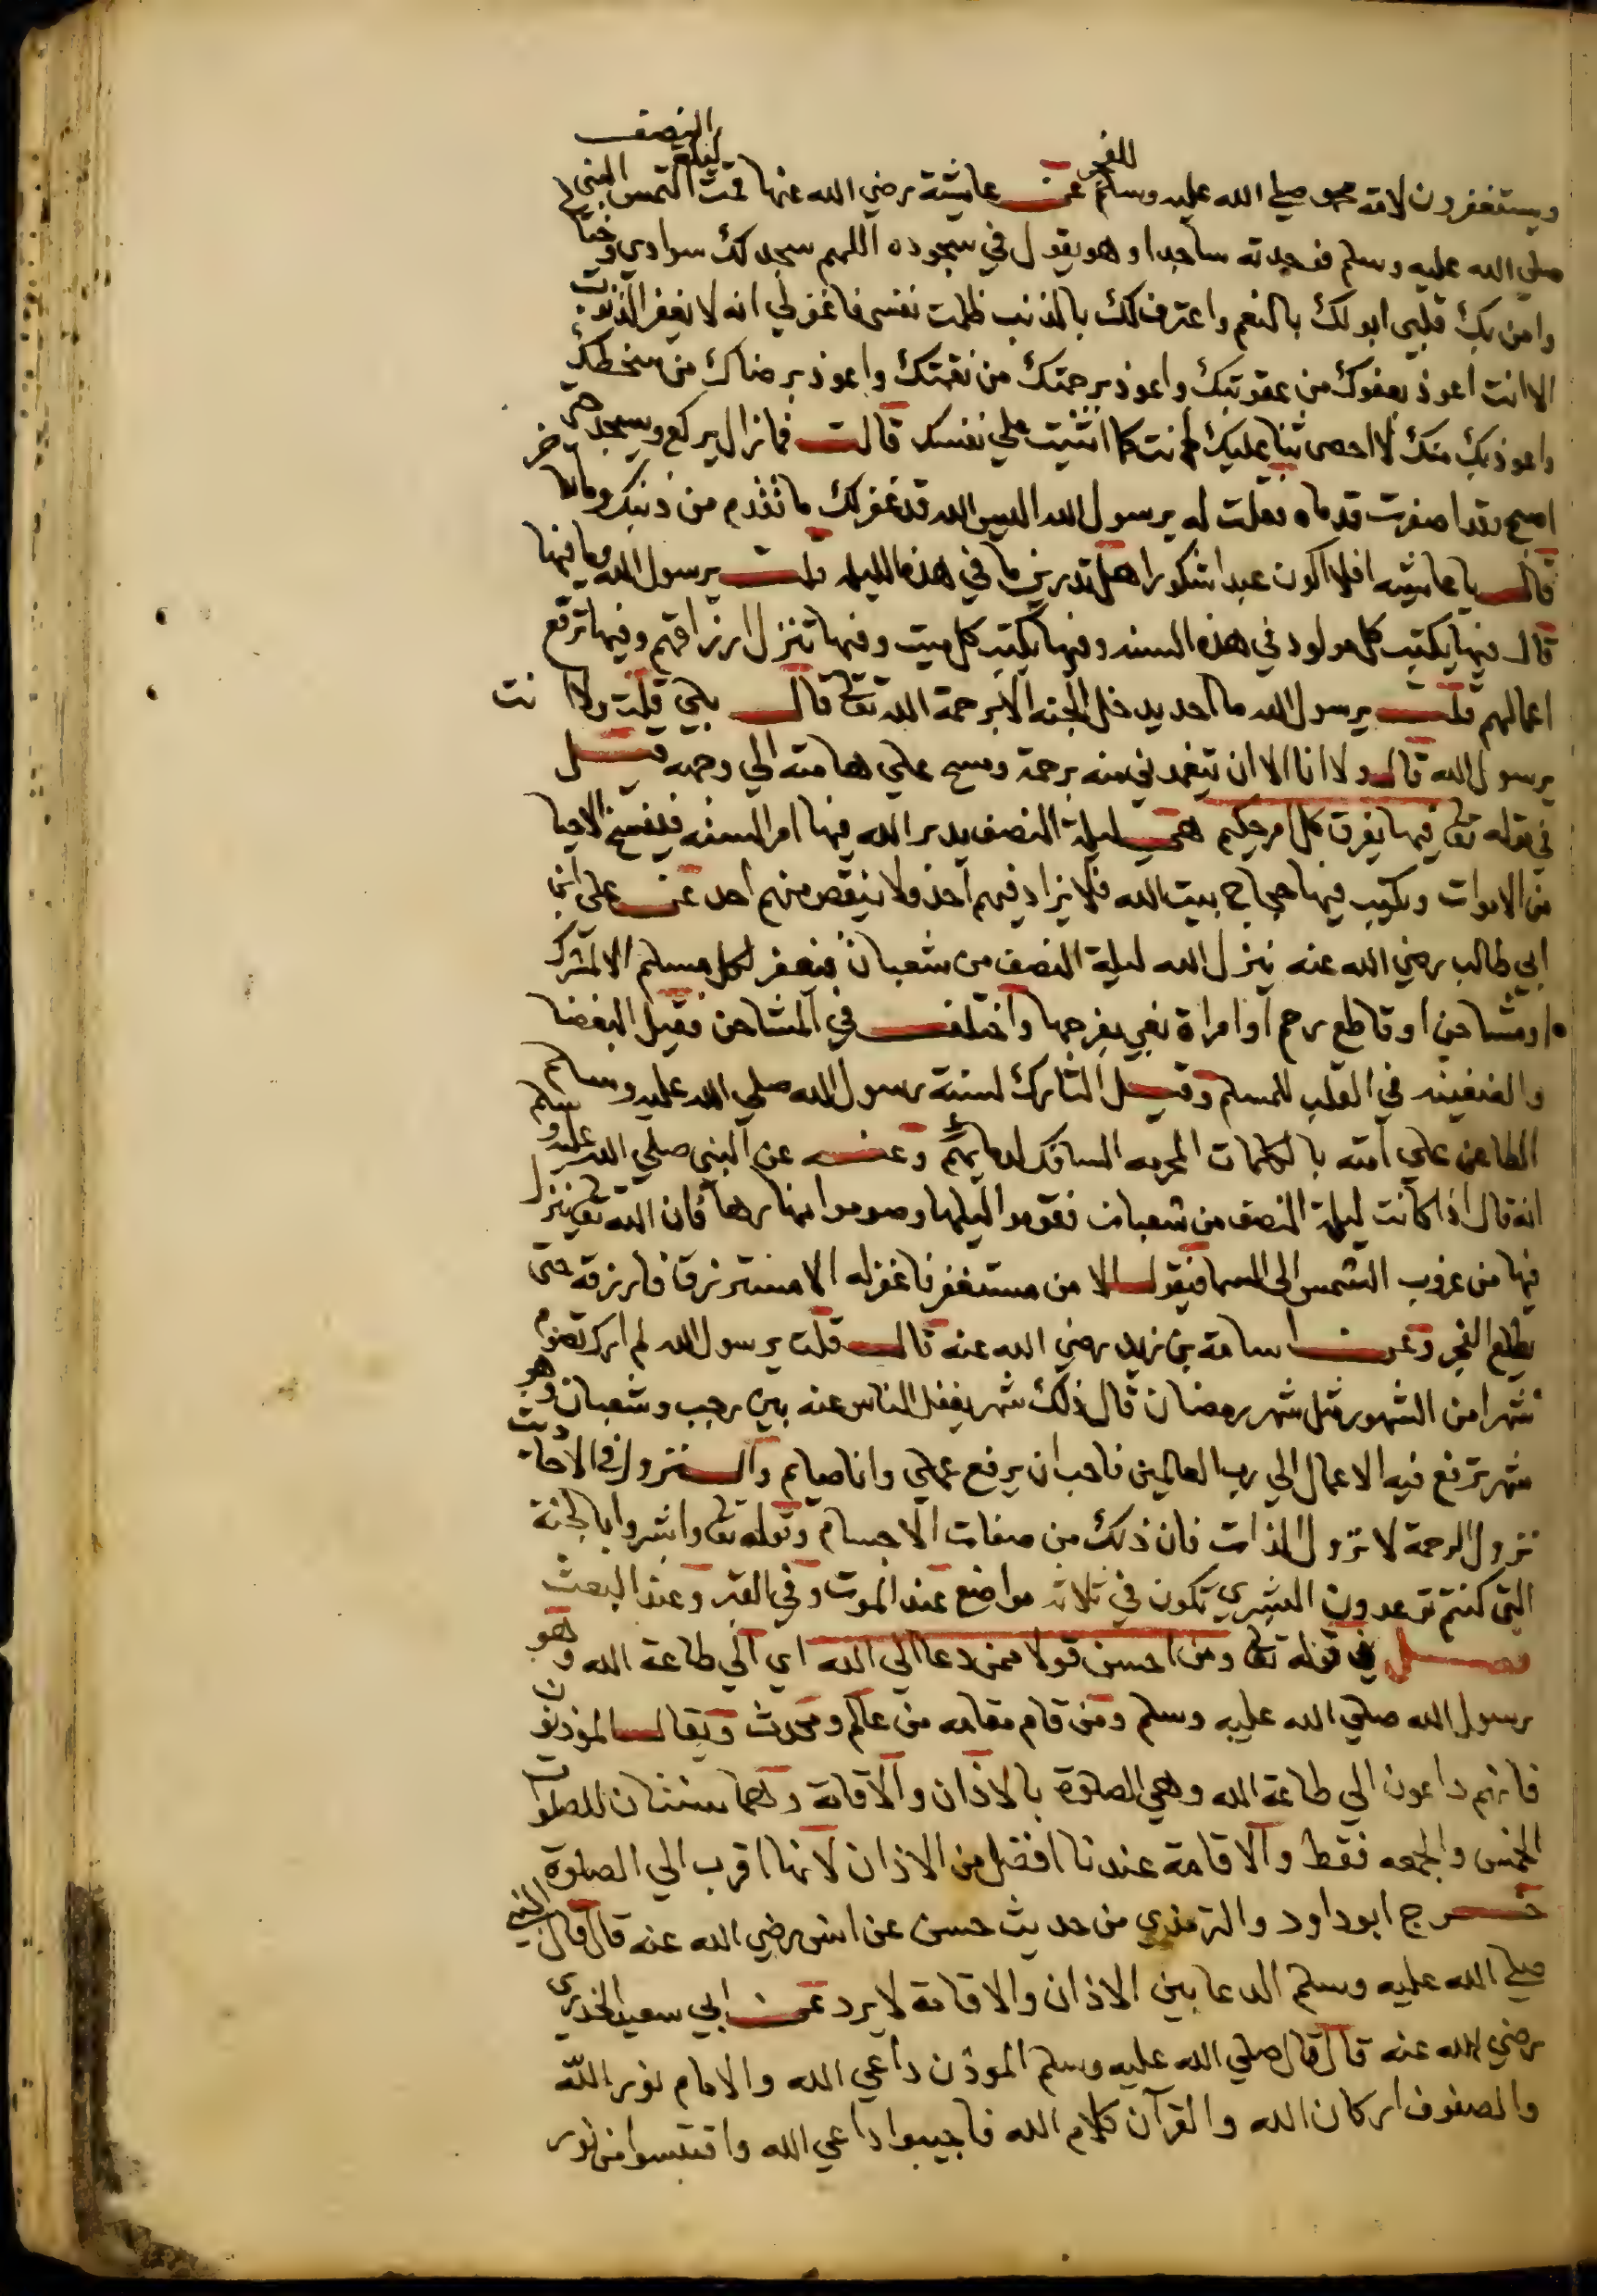 ويستغفرون لامة محمد صلي الله عليه وسلم للفجر عن عايشة رضي الله عنها قمت ليلة النصف التمس النبي
صلي الله عليه وسلم فوجدته ساجدا وهو يقول في سجوده اللهم سجد لك سوادي وخيالي
وامن بك قلبي ابو لك بالنعم واعترف لك بالذنب ظلمت نفسي فاغفر لي انه لا يغفر الذنوب
الا انت اعوذ بعفوك من عقوبتك واعوذ برحمتك من نقمتك واعوذ برضاك من سخطك
واعوذ بك منك لا احصي ثنا عليك انت كما اثنيت علي نفسك قالت فما زال يركع ويسجد حتي
اصبح وقد اصفرت قدماه فقلت له يرسول الله اليس الله قد غفر لك ما تقدم من ذنبك وما تاخر
قال يا عايشه افلا اكون عبدا شكورا هل تدرين ما في هذه الليله قلت يرسول الله وما فيها
قال فيها يكتب كل مولود في هذه السنه وفيها يكتب كل ميت وفيها تنزل ارزاقهم وفيها ترفع
اعمالهم قلت يرسول الله ما احد يدخل الجنه الا برحمة الله تعالي قال بلي قلت ولا انت
يرسول الله قال ولا انا الا ان يتغمدني منه برحمة ومسح علي هامته الي وجهه قيل
في قوله تعالي فيها يفرق كل امر حكيم هي ليلة النصف يدبر الله فيها امر السنه فينسخ الاحيا
من الاموات ويكتب فيها حجاج بيت الله فلا يزاد فيهم احد ولا ينقص منهم احد عن علي ابن
ابي طالب رضي الله عنه ينزل الله ليلة النصف من شعبان فيغفر لكل مسلم الا لمشرك
او مشاحن او قاطع رحم او امراة تبغي بفرجها واختلف في المشاحن فقيل البغضا
والضغينه في القلب للمسلم وقيل التارك لسنة رسول الله صلي الله عليه وسلم
الطاعن علي امته بالكلمات المحرمه السافك لدمايهم وعنه عن النبي صلي الله عليه وسلم
انه قال اذا كانت ليلة النصف من شعبان فقوموا ليلها وصوموا نهارها فان الله تعالي ينزل
فيها من غروب الشمس الي السما فيقول الا من مستغفر فاغفر له الا مسترزقا فارزقه حتي
يطلع الفجر وعن اسامة بن زيد رضي الله عنه قال قلت يرسول الله لم ارك تصوم
شهرا من الشهور مثل شهر رمضان قال ذلك شهر يغفل الناس عنه بين رجب وشعبان وهو
شهر ترفع فيه الاعمال الي رب العالمين فاحب ان يرفع عملي وانا صايم والنزول في الاحاديث
نزول الرحمة لا نزول الذات فان ذلك من صفات الاجسام وقوله تعالي وابشروا بالجنة
التي كنتم توعدون البشري تكون في ثلاثه مواضع عند الموت وفي القبر وعند البعث
فصل في قوله تعالي ومن احسن قولا ممن دعا الي الله اي الي طاعة الله وهو
رسول الله صلي الله عليه وسلم ومن قام مقامه من عالم ومحدث ويقال المؤذنون
فانهم داعون الي طاعة الله وهي الصلوة بالاذان والاقامة وهما سنتان للصلوات
الخمس والجمعه فقط والاقامة عندنا افضل من الاذان لانها اقرب الي الصلوة
خرج ابو داود والترمذي من حديث حسن عن انس رضي الله عنه قال قال النبي
صلي الله عليه وسلم الدعا بين الاذان والاقامة لا يرد عن ابي سعيد الخدري
رضي الله عنه قال قال صلي الله عليه وسلم الموذن داعي الله والامام نور الله
والصفوف اركان الله والقرآن كلام الله فاجيبوا داعي الله واقتبسوا من نور